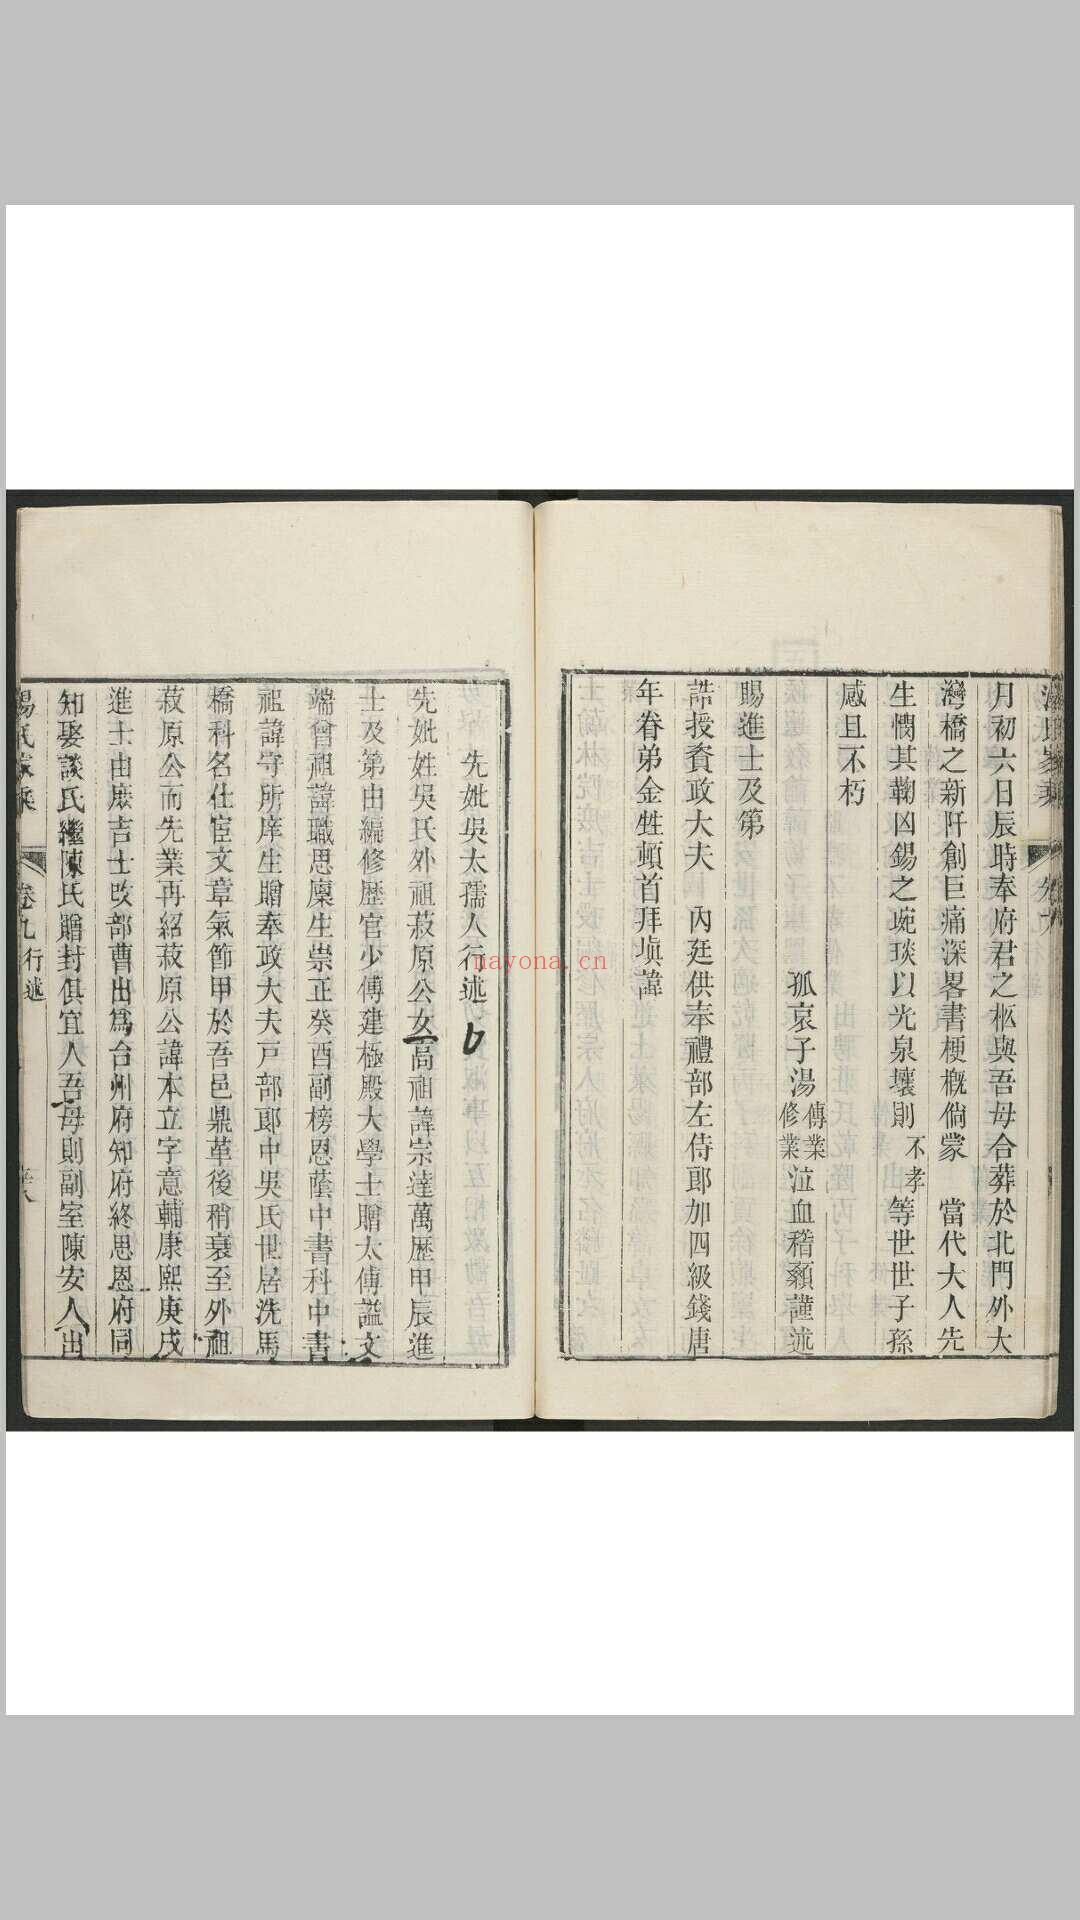 月初六日辰時奉府君之柩與吾母合葬於北門外大
灣橋之新阡創巨痛深畧書梗概倘蒙　當代大人先
生憫其鞠凶錫之琬琰以光泉壤則不孝等世世子孫
感且不朽
孤哀子湯傳業修業泣血稽顙謹述
賜進士及第
誥授資政大夫　內廷供奉禮部左侍郎加四級錢唐
年眷弟金甡頓首拜塡諱
先妣吳太孺人行述
先妣姓吳氏外祖菽原公女高祖諱宗達萬歷甲辰進
士及第由編修歷官少傅建極殿大學士贈太傅謚文
端曾祖諱職思廩生崇正癸酉副榜恩蔭中書科中書
祖諱守所庠生贈奉政大夫戸部郎中吳氏世居洗馬
橋科名仕宦文章氣節甲於吾邑鼎革後稍衰至外祖
菽原公而先業再紹菽原公諱本立字意輔康熙庚戌
進士由庶吉士改部曹出爲台州府知府終思恩府同
知娶談氏繼陳氏贈封俱宜人吾母則副室陳安人出
湯氏家乘
卷九　行述
nayona.cn